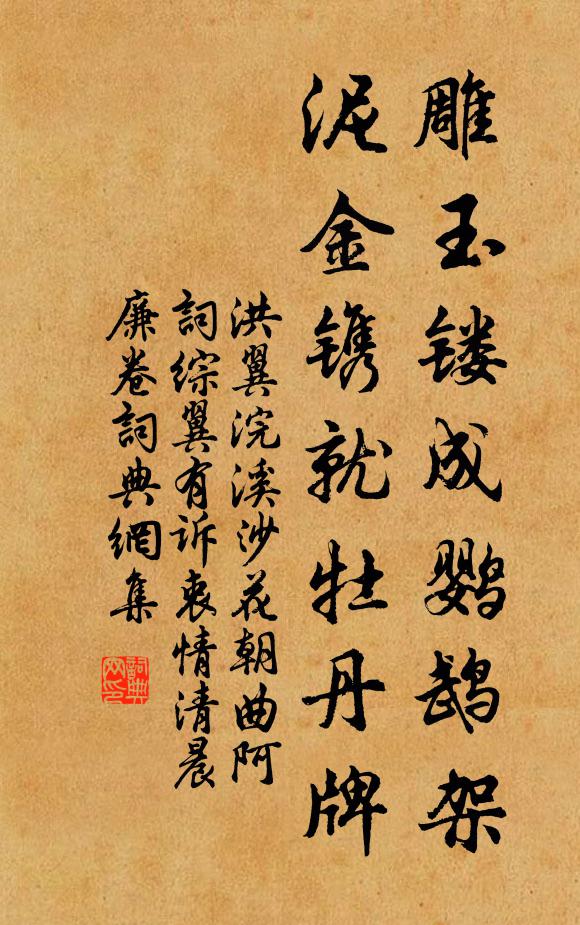 雕玉镂成鹦鹉架
泥金镌就牡丹牌
洪翼浣溪沙花朝曲阿
詞综翼有诉衷情清晨
廉卷詞典網集
詞典网印